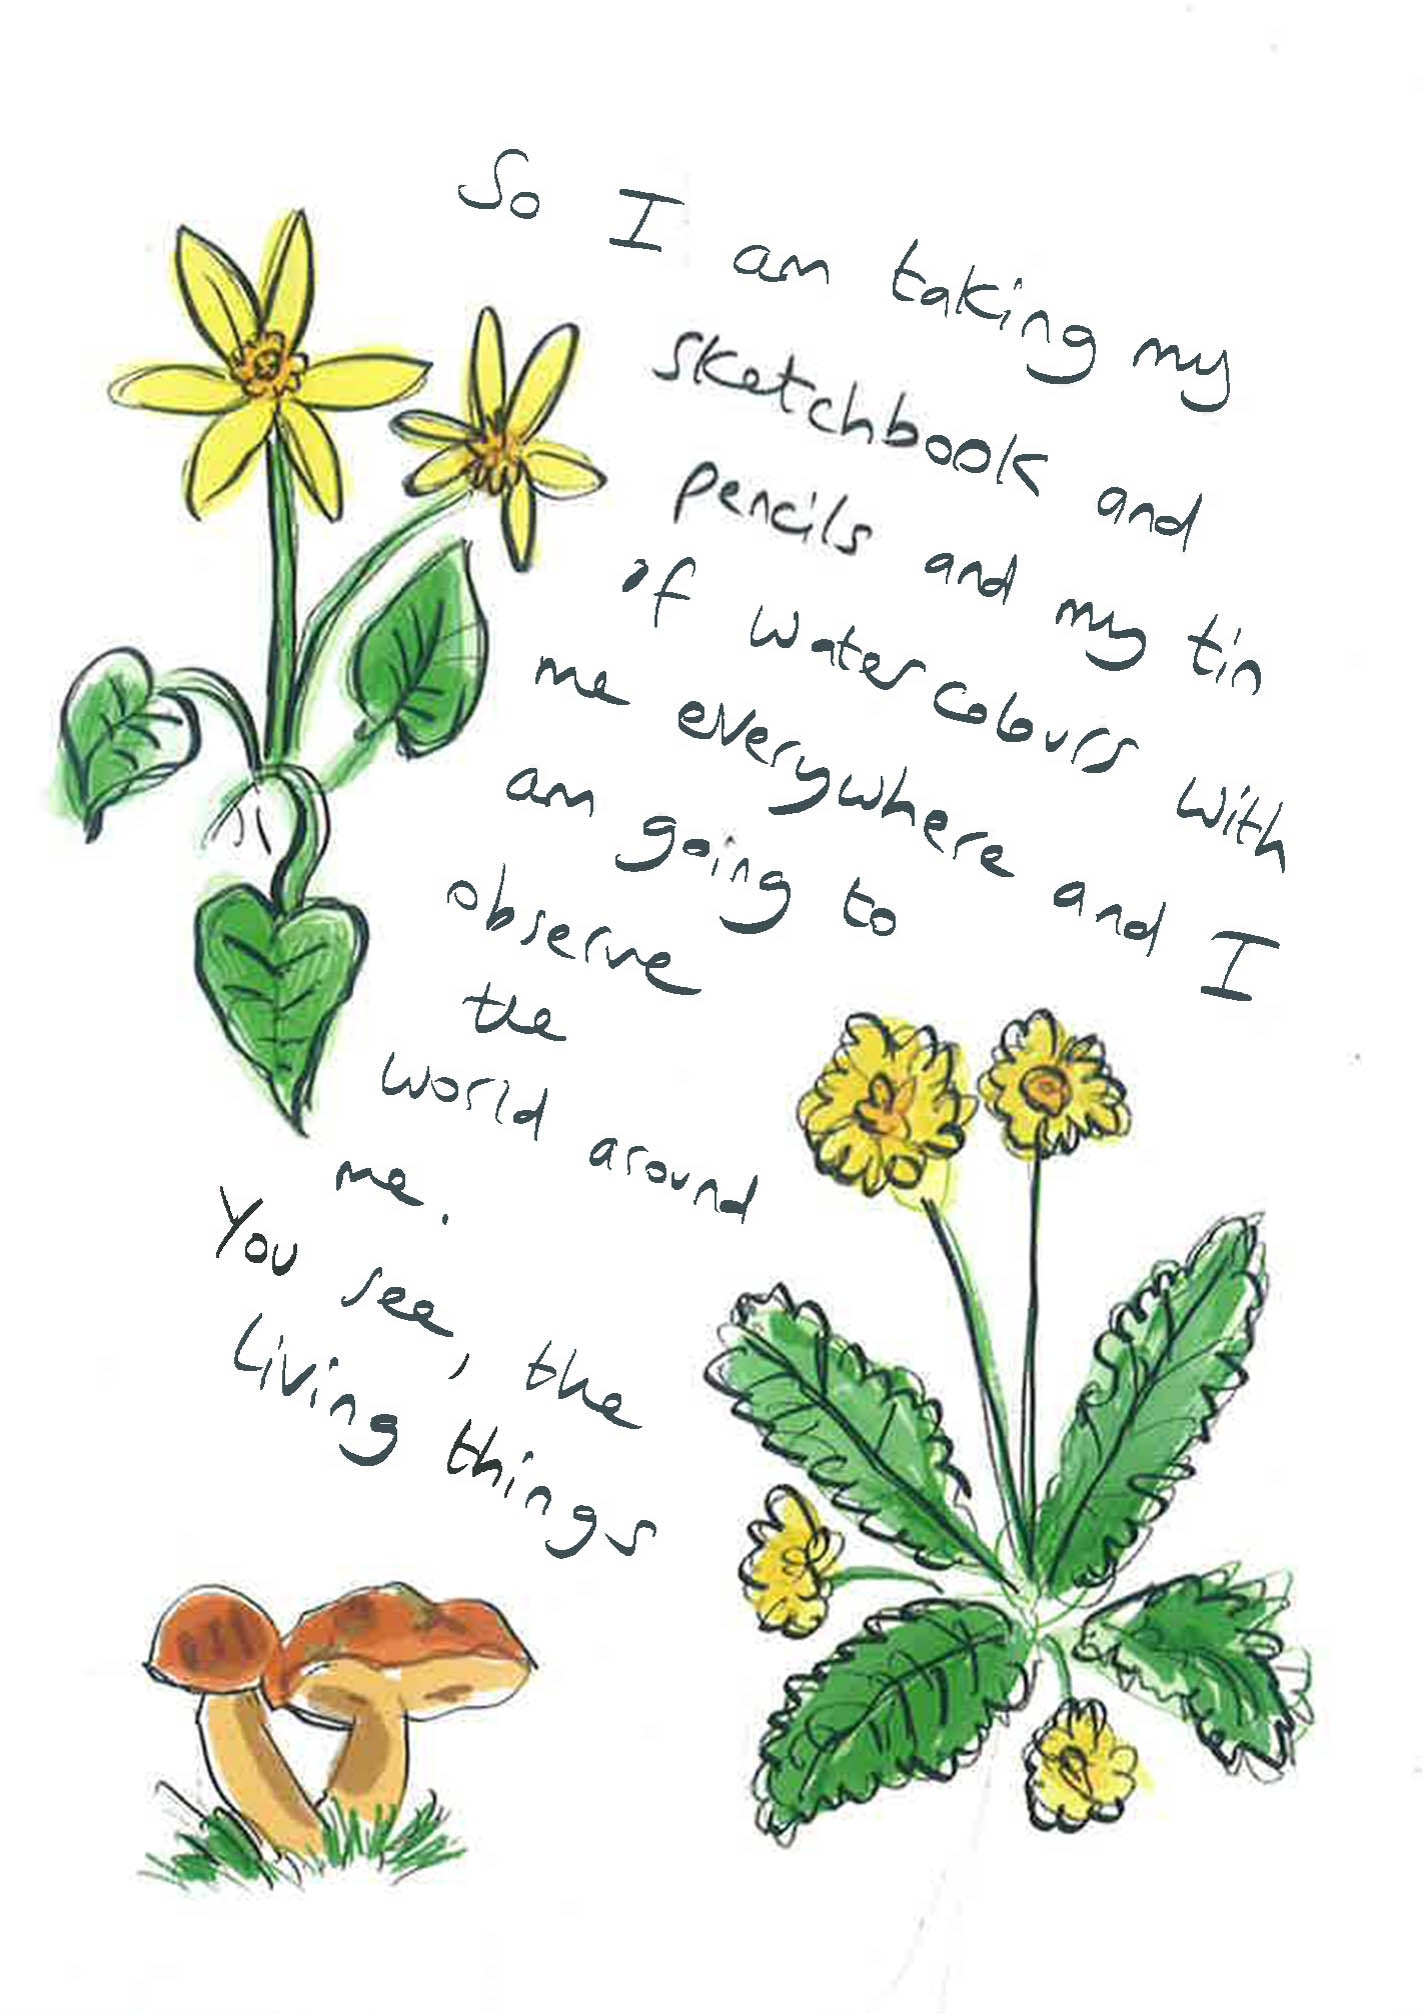 So I am taking my
sketchbook and
pencils and my tin
of watercolours with
me everywhere and I
am going to
observe
the
world around
me.
You see, the
living things